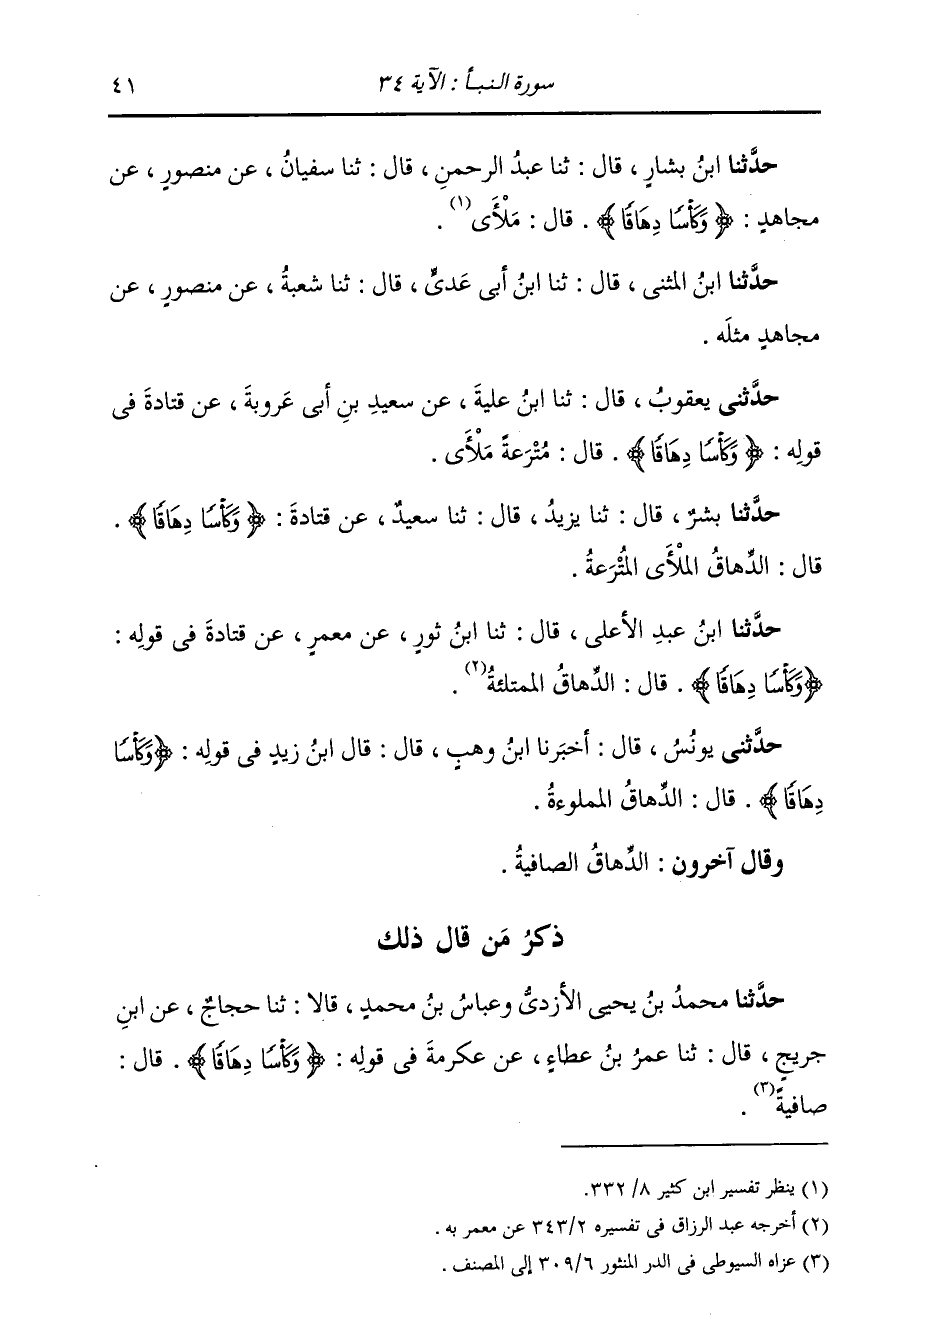 سورة النبأ : الآية ٣٤
٤١
حدَّثنا ابنُ بشارٍ ، قال : ثنا عبدُ الرحمنِ ، قال : ثنا سفيانُ ، عن منصورٍ ، عن
مجاهدٍ : ﴿ وَكَأْسًا دِهَاقًا ﴾ . قال : مَلْأَى(١) .
حدَّثنا ابنُ المثنى ، قال : ثنا ابنُ أبى عَدىٍّ ، قال : ثنا شعبةُ ، عن منصورٍ ، عن
مجاهدٍ مثلَه .
حدَّثنى يعقوبُ ، قال : ثنا ابنُ عليةَ ، عن سعيدِ بنِ أبى عَروبةَ ، عن قتادةَ فى
قولِه : ﴿ وَكَأْسًا دِهَاقًا ﴾ . قال : مُتْرَعةً مَلْأَى .
حدَّثنا بشرٌ ، قال : ثنا يزيدُ ، قال : ثنا سعيدٌ ، عن قتادةَ : ﴿ وَكَأْسًا دِهَاقًا ﴾ .
قال : الدِّهاقُ المَلْأَى المُتْرَعةُ .
حدَّثنا ابنُ عبدِ الأعلى ، قال : ثنا ابنُ ثورٍ ، عن معمرٍ ، عن قتادةَ فى قولِه :
﴿ وَكَأْسًا دِهَاقًا ﴾ . قال : الدِّهاقُ الممتلئةُ(٢) .
حدَّثنى يونُسُ ، قال : أخبَرنا ابنُ وهبٍ ، قال : قال ابنُ زيدٍ فى قولِه : ﴿ وَكَأْسًا
دِهَاقًا ﴾ . قال : الدِّهاقُ المملوءةُ .
وقال آخرون : الدِّهاقُ الصافيةُ .
ذكرُ مَن قال ذلك
حدَّثنا محمدُ بنُ يحيى الأزدىُّ وعباسُ بنُ محمدٍ ، قالا : ثنا حجاجٌ ، عن ابنِ
جريجٍ ، قال : ثنا عمرُ بنُ عطاءٍ ، عن عكرمةَ فى قولِه : ﴿ وَكَأْسًا دِهَاقًا ﴾ . قال :
صافيةً(٣) .
(١) ينظر تفسير ابن كثير ٨/ ٣٣٢.
(٢) أخرجه عبد الرزاق فى تفسيره ٣٤٣/٢ عن معمر به .
(٣) عزاه السيوطى فى الدر المنثور ٣٠٩/٦ إلى المصنف .